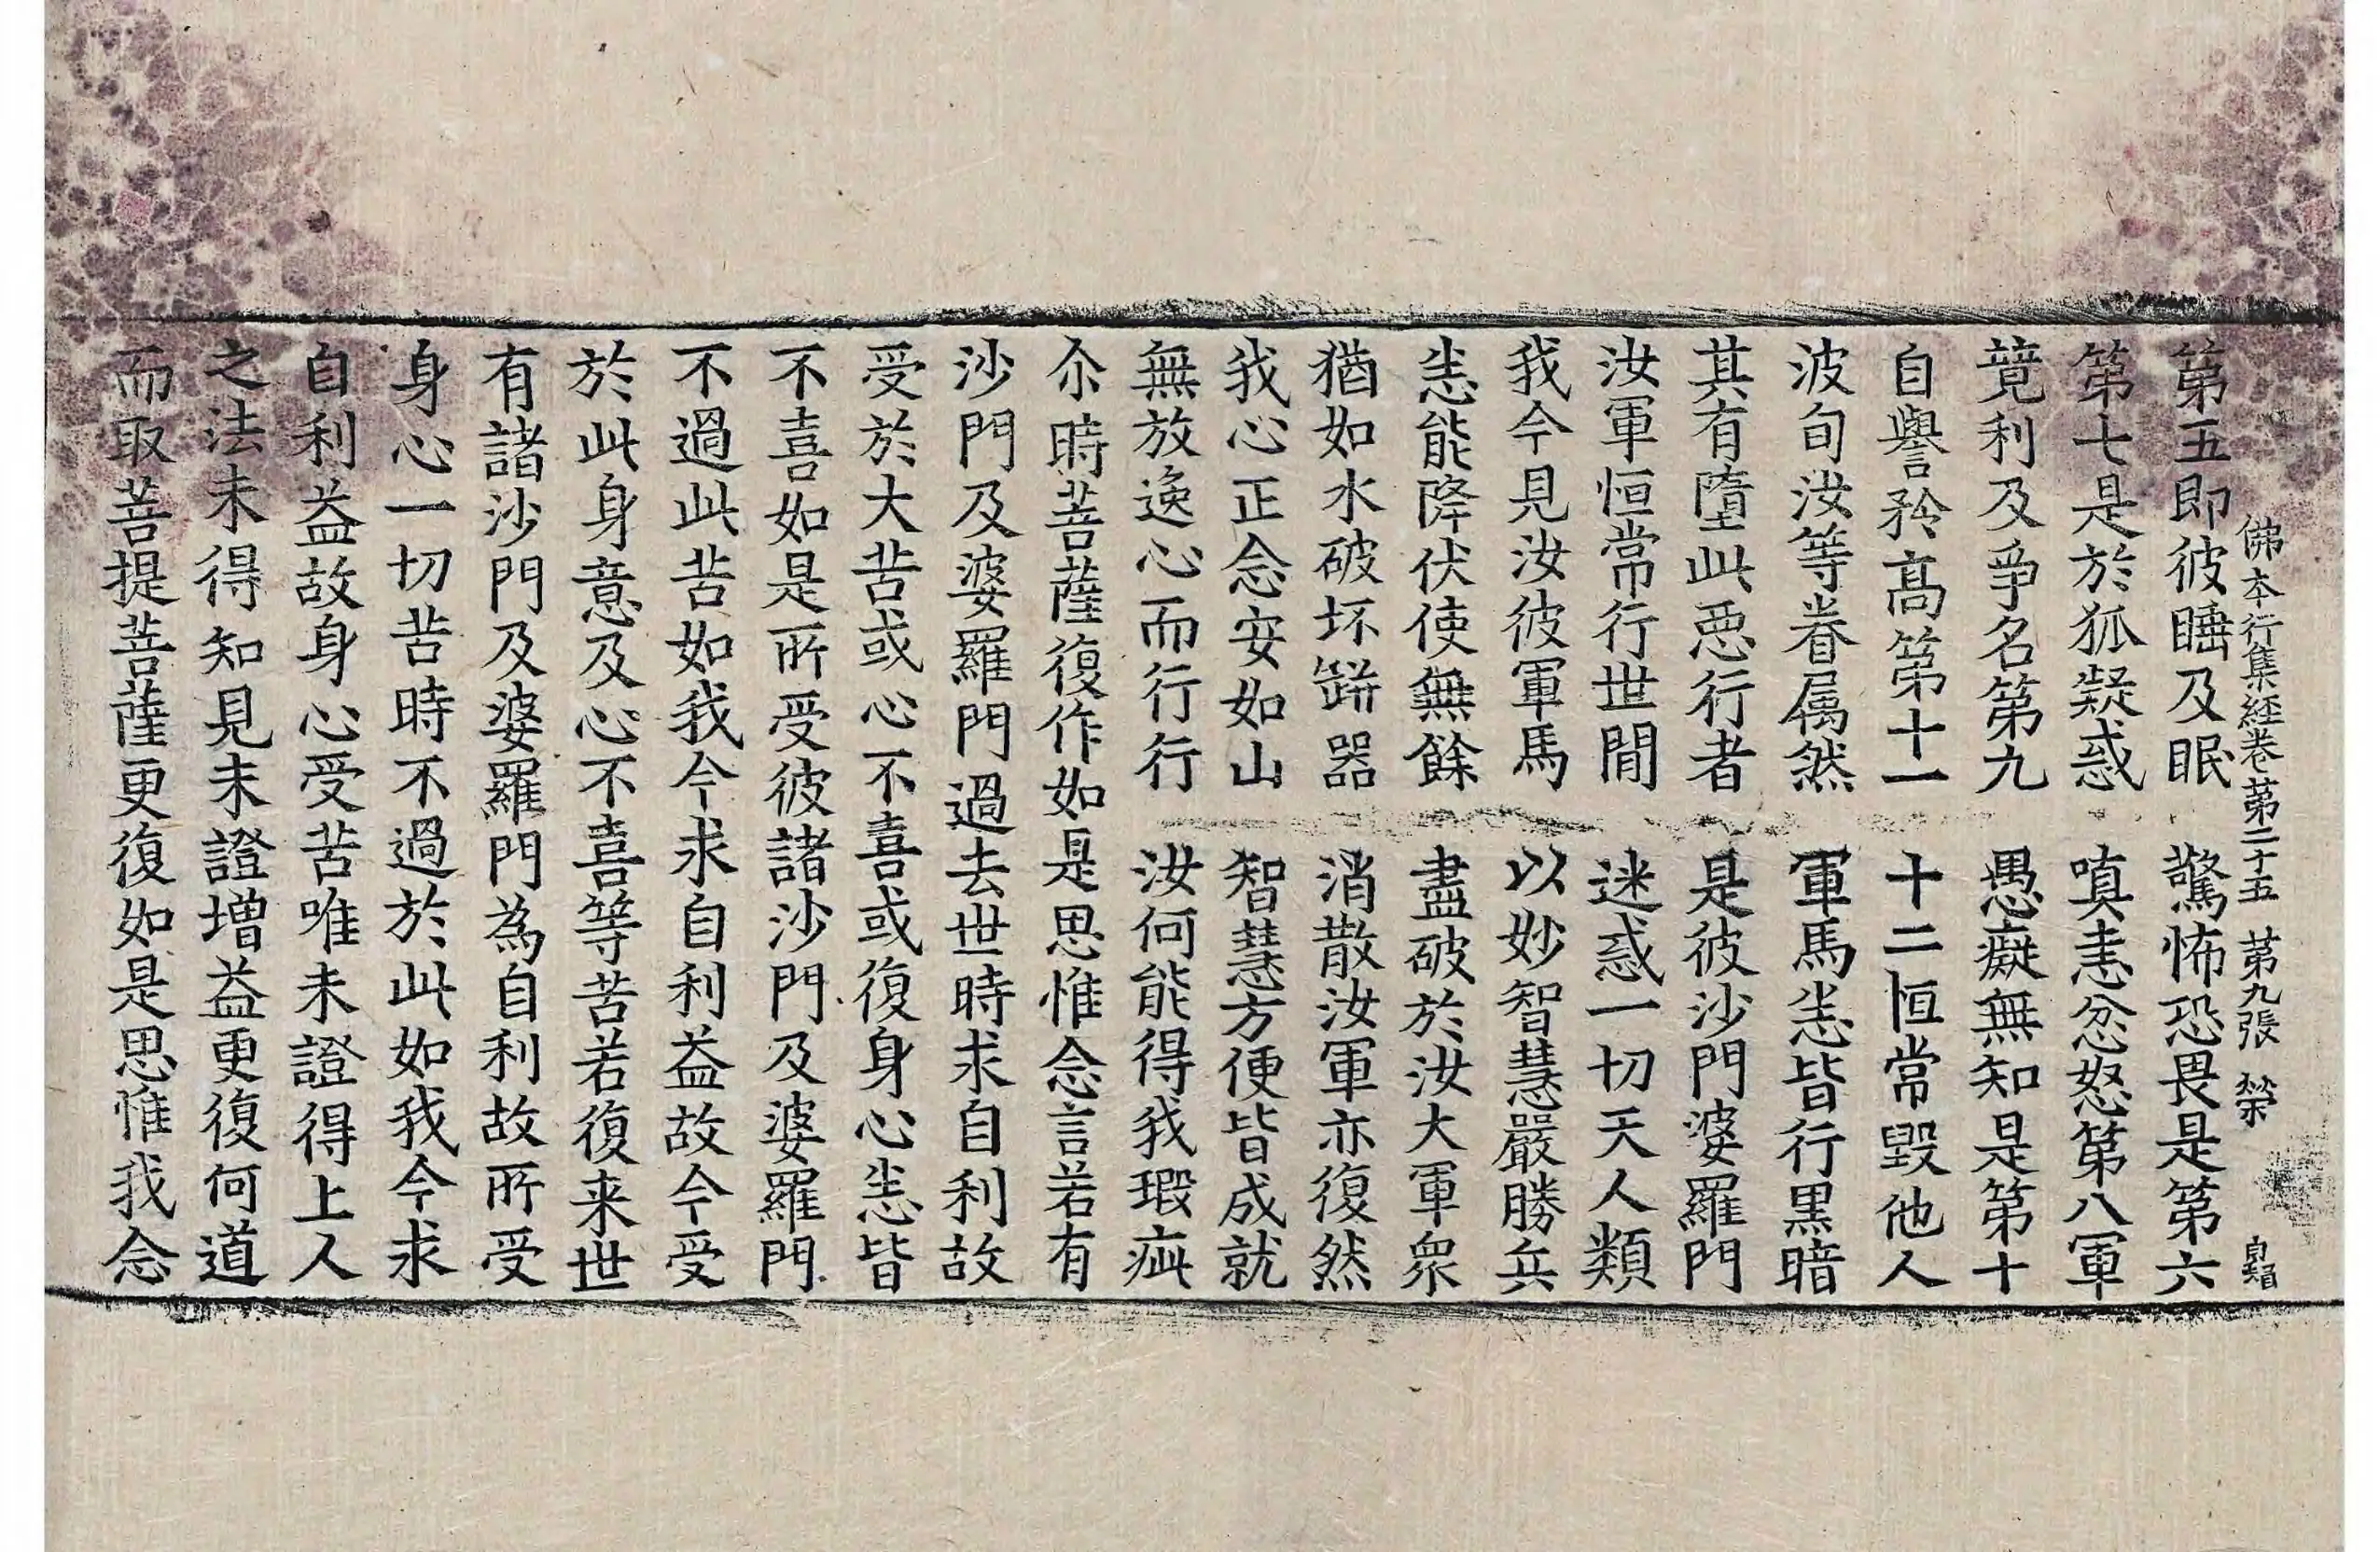 佛本行集經卷第二十五 第九張 榮
第五即彼睡及眠 驚怖恐畏是第六
第七是於狐疑惑 嗔恚忿怒第八軍
競利及爭名第九 愚癡無知是第十
自譽矜高第十一 十二恒常毀他人
波旬汝等眷属然 軍馬恙皆行黑暗
其有墮此恶行者 是彼沙門婆羅門
汝軍恒常行世間 迷惑一切天人類
我今見汝彼軍馬 以妙智慧嚴勝兵
恙能降伏使無餘 盡破於汝大軍衆
猶如水破坏缾器 消散汝軍亦復然
我心正念安如山 智慧方便皆成就
無放逸心而行行 汝何能得我瑕疵
尒時菩薩復作如是思惟念言若有
沙門及婆羅門過去世時求自利故
受於大苦或心不喜或復身心恙皆
不喜如是所受彼諸沙門及婆羅門
不過此苦如我今求自利益故今受
於此身意及心不喜等苦若復来世
有諸沙門及婆羅門為自利故所受
身心一切苦時不過於此如我今求
自利益故身心受苦唯未證得上人
之法未得知見未證增益更復何道
而取菩提菩薩更復如是思惟我念